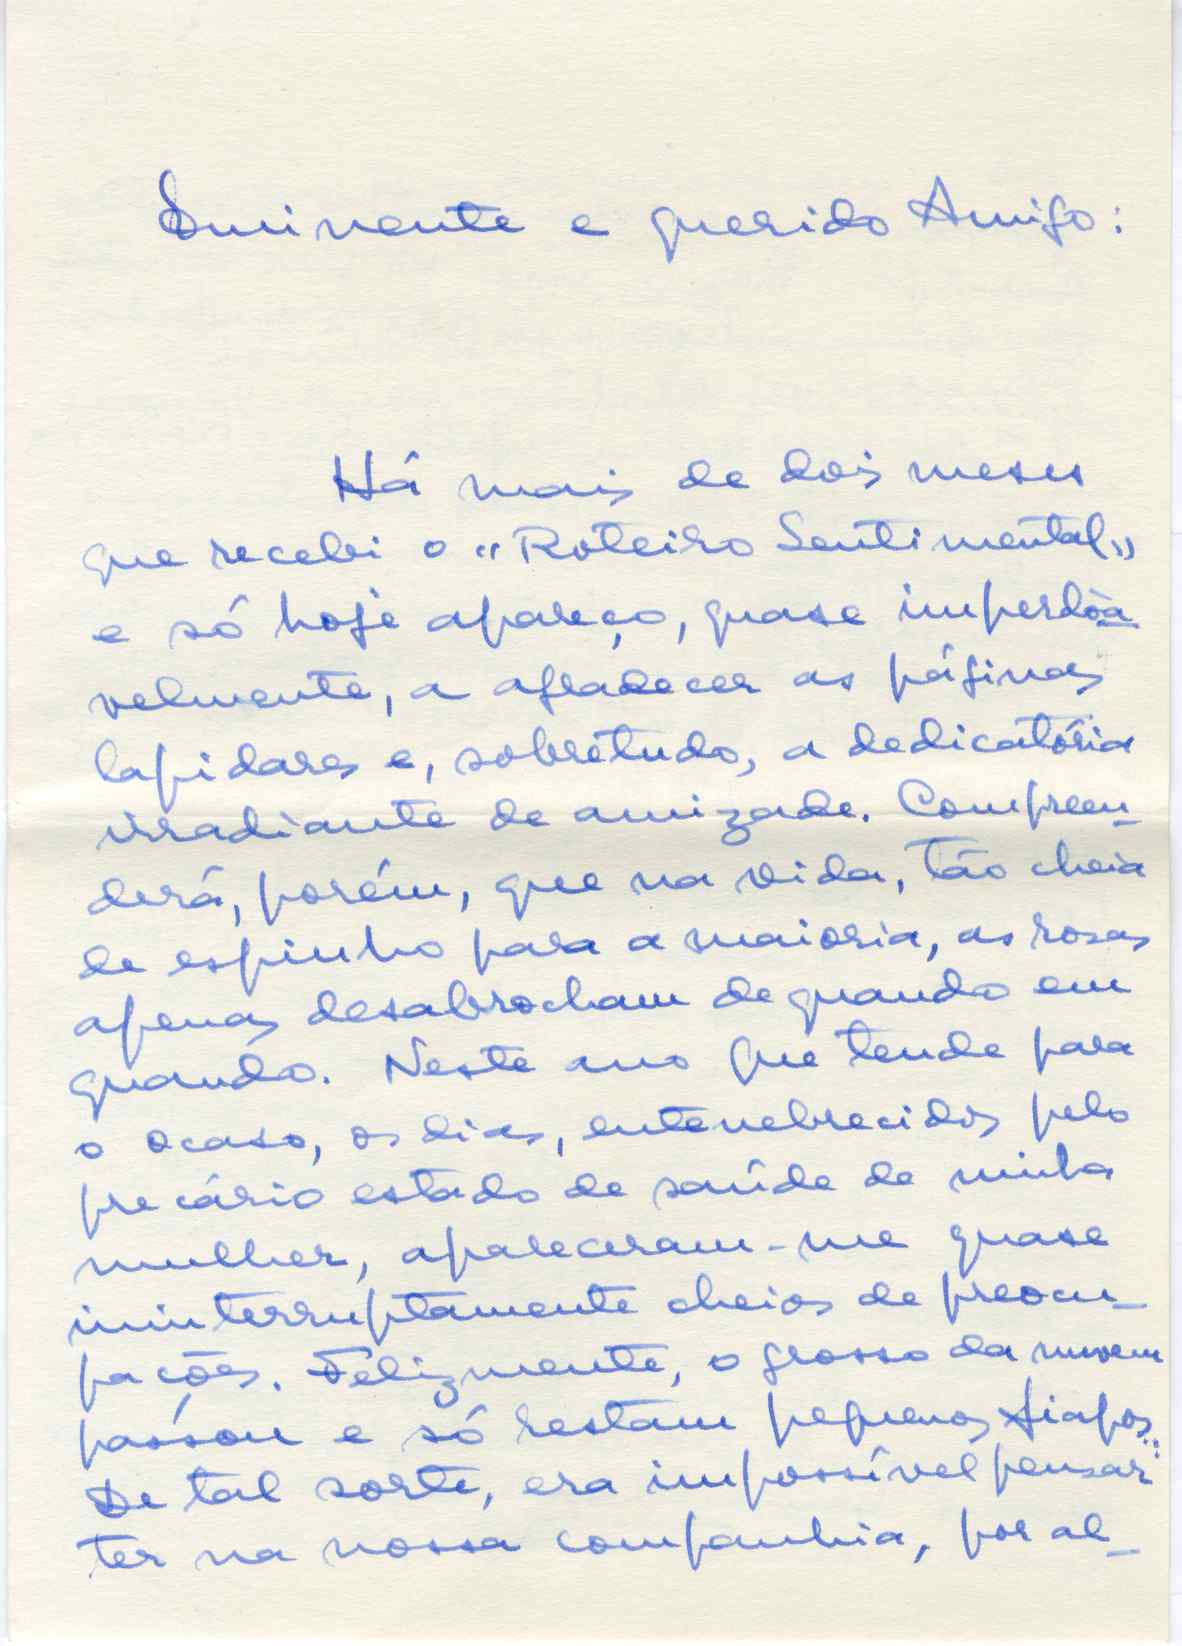 Eminente e querido Amigo:
Há mais de dois meses
que recebi o "Roteiro Sentimental"
e só hoje apareço, quase imperdòa-
velmente, a agradecer as páginas
lapidares e, sobretudo, a dedicatória
irradiante de amizade. Compreen-
derá, porém, que na vida, tão cheia
de espinho para a maioria, as rosas
apenas desabrocham de quando em
quando. Neste ano que tende para
o ocaso, os dias, entenebrecidos pelo
precário estado de saúde de minha
mulher, apareceram-me quase
ininterruptamente cheios de preocu-
pações. Felizmente, o grosso da nuvem
passou e só restam pequenos fiapos.
De tal sorte, era impossível pensar
ter na nossa companhia, por al-